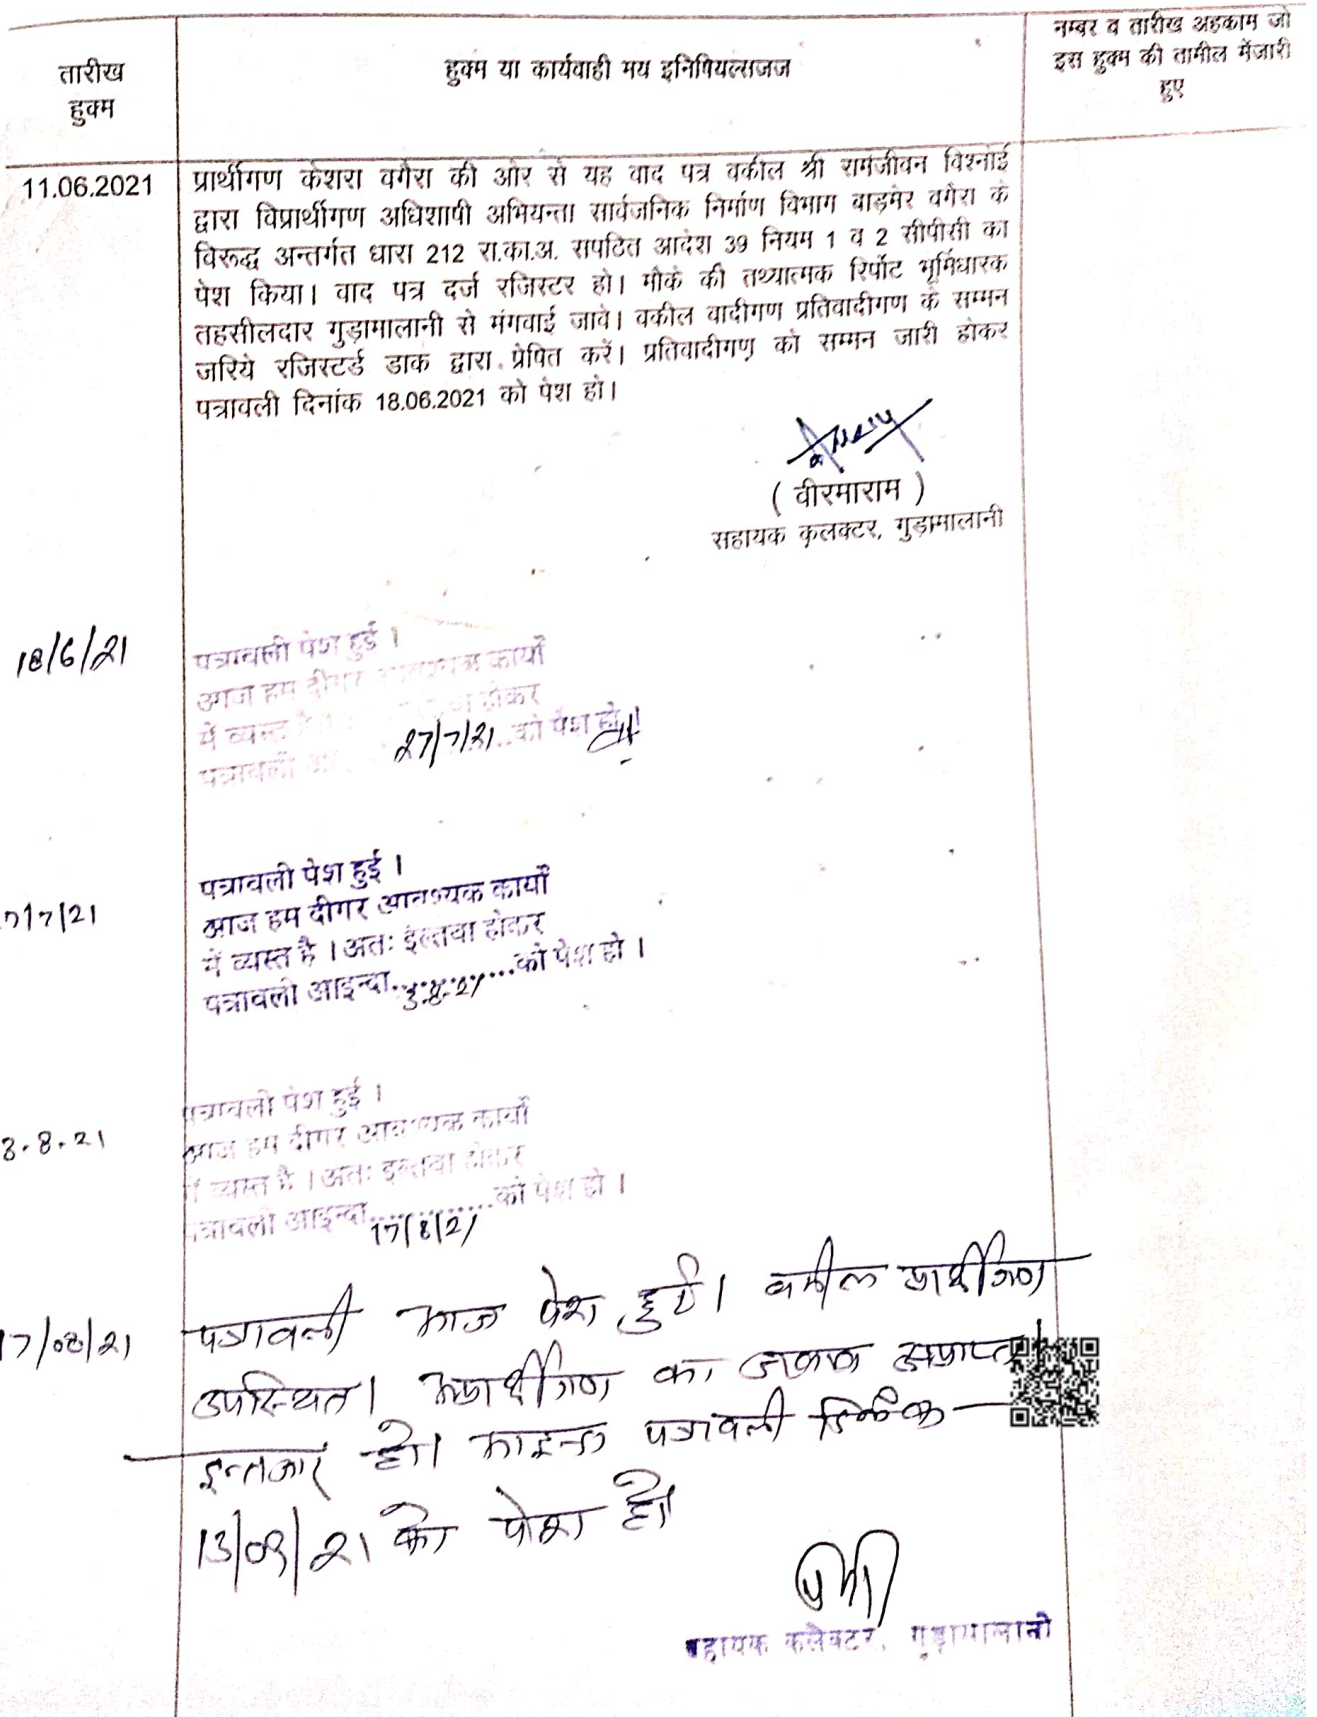 तारीख
हुक्म
हुक्म या कार्यवाही मय इनिषियल्सजज
नम्बर व तारीख अहकाम जो
इस हुक्म की तामील मेंजारी
हुए
11.06.2021
प्रार्थीगण केशरा वगैरा की ओर से यह वाद पत्र वकील श्री रामजीवन विश्नोई
द्वारा विप्रार्थीगण अधिशाषी अभियन्ता सार्वजनिक निर्माण विभाग बाड़मेर वगैरा के
विरूद्ध अन्तर्गत धारा 212 रा.का.अ. सपठित आदेश 39 नियम 1 व 2 सीपीसी का
पेश किया। वाद पत्र दर्ज रजिस्टर हो। मौके की तथ्यात्मक रिर्पोट भूमिधारक
तहसीलदार गुड़ामालानी से मंगवाई जावे। वकील वादीगण प्रतिवादीगण के सम्मन
जरिये रजिस्टर्ड डाक द्वारा प्रेषित करें। प्रतिवादीगण को सम्मन जारी होकर
पत्रावली दिनांक 18.06.2021 को पेश हो।
( वीरमाराम )
सहायक कलक्टर, गुड़ामालानी
18/6/21
पत्रावली पेश हुई ।
आज हम दीगर आवश्यक कार्यों
में व्यस्त है होकर
पत्रावली 27/7/21 को पेश हो ।
7/7/21
पत्रावली पेश हुई ।
आज हम दीगर आवश्यक कार्यों
में व्यस्त है । अतः इल्तवा होकर
पत्रावली आइन्दा 3.8.21 को पेश हो ।
3.8.21
पत्रावली पेश हुई ।
आज हम दीगर आवश्यक कार्यों
में व्यस्त है । अतः इल्तवा होकर
पत्रावली आइन्दा 17/8/21 को पेश हो ।
17/08/21
पत्रावली आज पेश हुई। वकील प्रार्थीगण
उपस्थित। अप्रार्थीगण का जबाब अप्राप्त।
इन्तजार हो। आइन्दा पत्रावली दिनांक
13/09/21 को पेश हो।
सहायक कलैक्टर, गुड़ामालानी